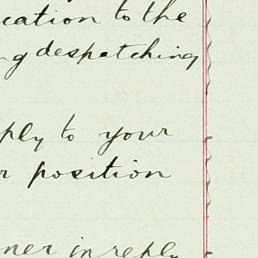 cation to the
ng despatching
ply to your
r position
ner in reply